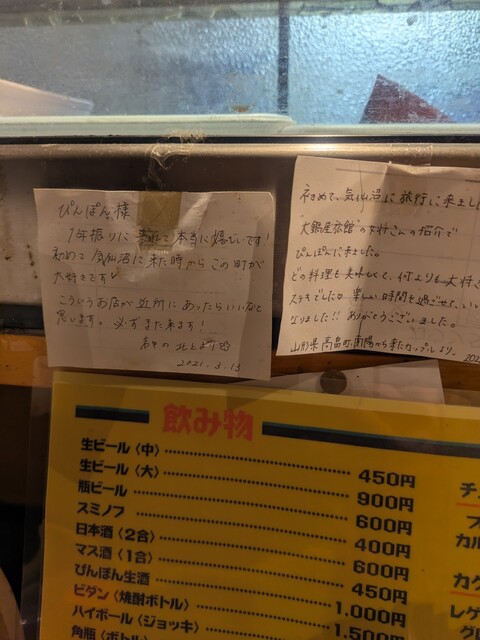 ぴんぽん様
1年振りに来れて本当に嬉しいです!
初めて気仙沼に来た時からこの町が
大好きです
こういうお店が近所にあったらいいなと
思います。必ずまた来ます!
2021.3.13
初めて、気仙沼に旅行に来まし
大鍋屋旅館の女将さんの紹介で
ぴんぽんに来ました。
どの料理も美味しくて、何よりも大将さ
ステキでしたか 楽しい時間を過ごせて、いい
なりました!! ありがとうございました。
山形県 高畠町・南陽から来たカップルより。
202
飲み物
生ビール〈中〉 450円
生ビール〈大〉 900円
瓶ビール 600円
スミノフ 400円
日本酒〈2合〉 600円
マス酒〈1合〉 450円
ぴんぽん生酒 1.000円
ビタン〈焼酎ボトル〉 1.500円
ハイボール〈ジョッキ〉
角瓶〈ボトル〉
チ
フ
カル
カク
レゲ
グ